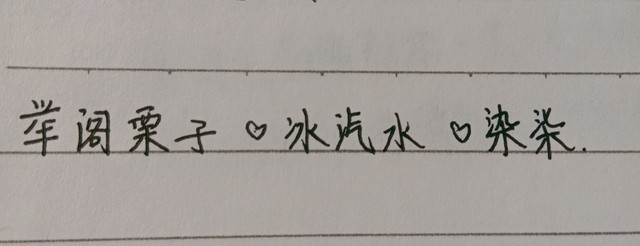 举阁栗子♡冰汽水♡染染.